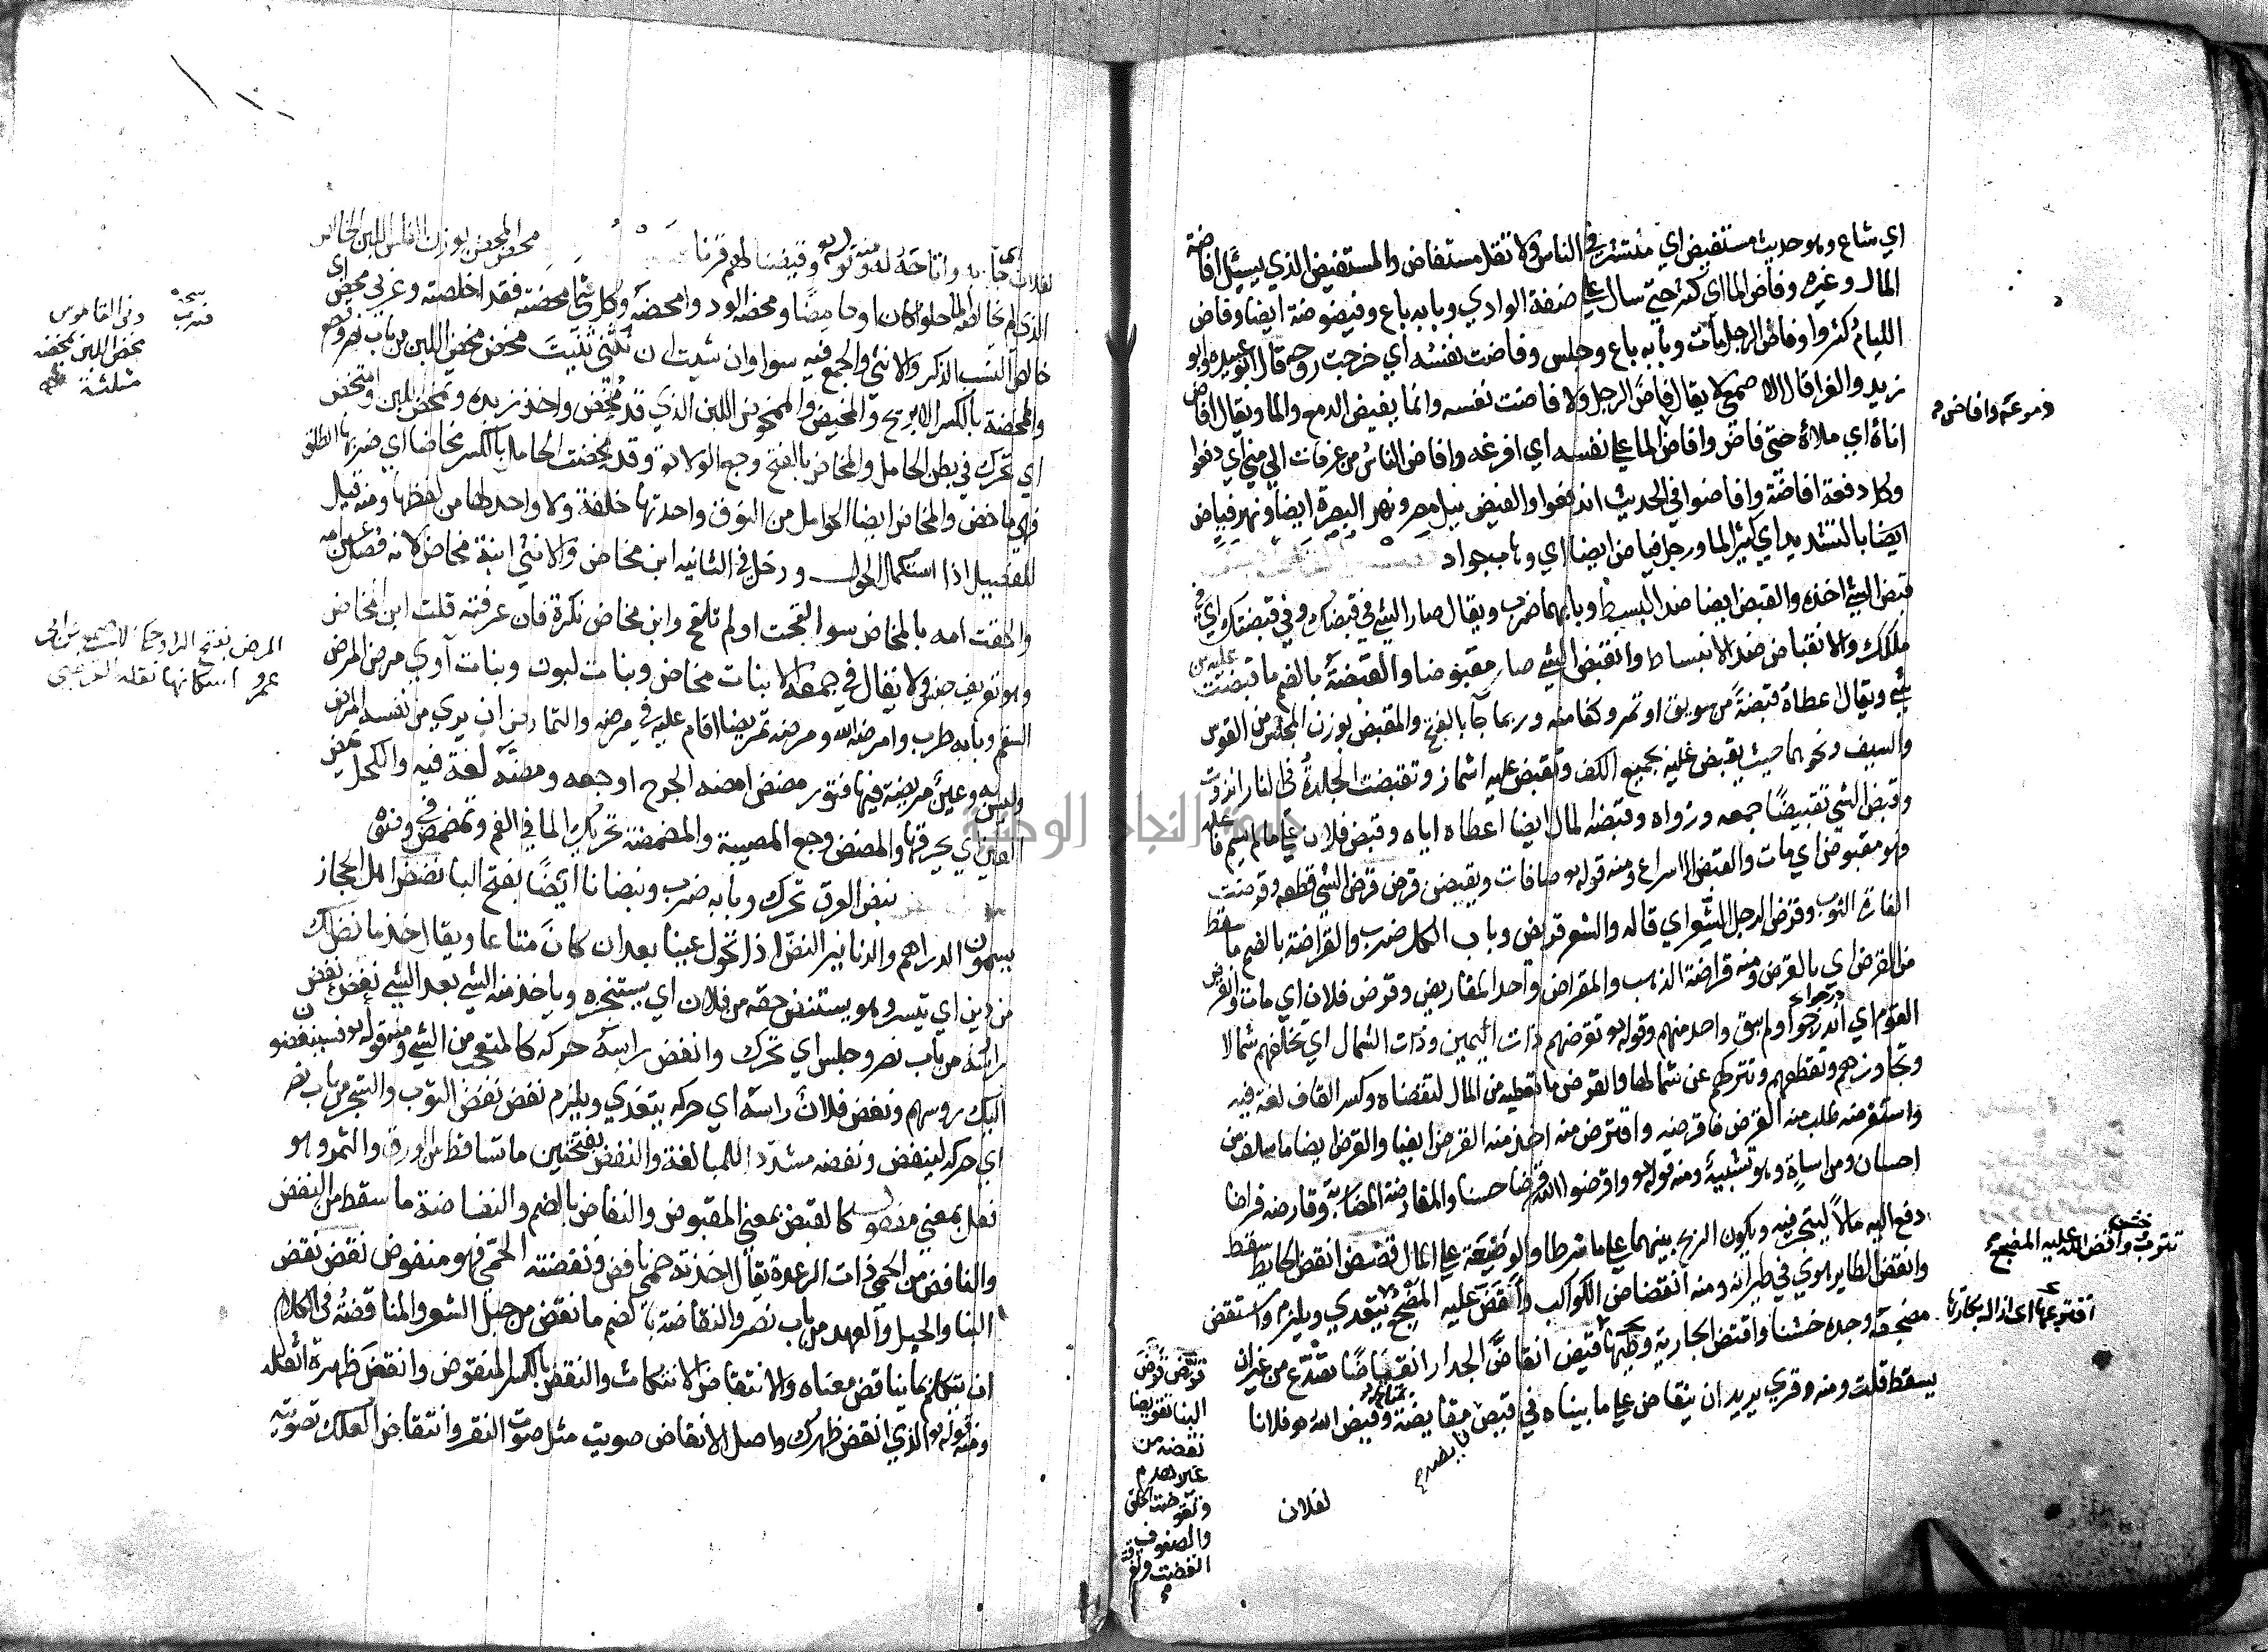 اي شاع وهو حديث مستفيض اي منتشر في الناس ولا تقل مستفاض والمستفيض الذي يسيل افاضة
المال وغيره وفاض الما اي كثر حتى سال على ضفة الوادي وبابه باع وفيضوضة ايضا وفاض
الليام كثروا وفاض الرجل مات وبابه باع وجلس وفاضت نفسه اي خرجت روحه قال ابو عبيدة وابو
زيد والفرا قال الاصمعي لا يقال فاض الرجل ولا فاضت نفسه وانما يفيض الدمع والما ويقال افاض
اناه اي ملاه حتى فاض وافاض الما على نفسه اي افرغه وافاض الناس من عرفات الى منى اي دفعوا
وكل دفعة افاضة وافاضوا في الحديث اندفعوا والفيض نيل مصر ونهر البصرة ايضا ونهر فياض
ايضا بالتشديد اي كثير الما ورجل فياض ايضا اي وهاب جواد
قبض الشي اخذه والقبض ايضا ضد البسط وبابهما ضرب ويقال صار الشي في قبضك وفي قبضتك اي في
ملكك والانقباض ضد الانبساط وانقبض الشي صار مقبوضا والقبضة بالضم ما قبضت عليه من
شي ويقال اعطاه قبضة من سويق او تمر وكفا منه وربما جا بالفتح والمقبض بوزن المجلس من القوس
والسيف ونحوهما حيث يقبض عليه بجميع الكف وتقبض عليه اشماز وتقبضت الجلدة في النار انزوت
وقبض الشي تقبيضا جمعه وزواه وقبضه المال ايضا اعطاه اياه وقبض فلان على ما لم يسم فاعله
وهو مقبوض اي مات والقبض الاسراع ومنه قوله صافات ويقبضن قرض قرض الشي قطعه وقرضت
الفارة الثوب وقرض الرجل الشعر اي قاله والشعر قريض وباب الكل ضرب والقراضة بالضم ما سقط
من القرض اي بالقرض ومنه قراضة الذهب والمقراض واحد المقاريض وقرض فلان اي مات وانقرض
القوم اي اندرجوا ولم يبق واحد منهم وقوله تقرضهم ذات اليمين وذات الشمال اي تخلفهم شمالا
وتجاوزهم وتقطعهم وتتركهم عن شمالها والقرض ما تعطيه من المال لتقضاه وكسر القاف لغة فيه
واستقرضه طلب منه القرض فاقرضه واقترض منه اخذ منه القرض ايضا والقرض ايضا ما سلف من
احسان ومن اساءة وهو تشبيه ومنه قوله واقرضوا الله قرضا حسنا والمقارضة المضاربة وقارضه قراضا
دفع اليه مالا ليتجر فيه ويكون الربح بينهما على ما شرطا والوضيعة على المال قضض انقض الحايط سقط
وانقض الطاير هوي في طيرانه ومنه انقضاض الكواكب واقض عليه المضجع يتعدي ويلزم واستقض
مضجعه وجده خشنا واقتض الجارية قيض انقاض الجدار انقياضا تصدع من غير ان
يسقط قلت ومنه وقري يريد ان ينقاض على ما بيناه في قيض مقايضة وقيض الله فلانا
لفلان
دموعه وافاض
تترب واقض الله عليه المضجع
افترعها اي ازال بكارتها
قوض قوض
البنا تقويضا
نقضه من
غير هدم
وتقوضت الحلق
والصفوف
انتقضت وتفرقت
لفلان جا به واتاحه له ومنه قوله وقيضنا لهم قرنا محض المحض بوزن الفلس اللبن الخالص
الذي لم يخالطه الما حلوا كان او حامضا ومحضه الود وامحضه وكل شي امحضته فقد اخلصته وعربي محض اي
خالص النسب الذكر والانثى والجمع فيه سوا وان شيت انثت وثنيت مخض مخض اللبن من باب نصر وقطع
والممخضة بالكسر الابريج والمخيض والممخوض اللبن الذي قد مخض واخذ زبده وتمخض اللبن وامتخض
اي تحرك في بطن الحامل والمخاض بالفتح وجع الولادة وقد مخضت الحامل بالكسر مخاضا اي ضربها الطلق
فهي ماخض والمخاض ايضا الحوامل من النوق واحدتها خلفة ولا واحد لها من لفظها ومنه قيل
للفصيل اذا استكمل الحول ودخل في الثانيه ابن مخاض والانثى ابنة مخاض لانه فصل عن امه
والحقت امه بالمخاض سوا لقحت او لم تلقح وابن مخاض نكرة فان عرفته قلت ابن المخاض
وهو تعريف جنس ولا يقال في جمعه الا بنات مخاض وبنات لبون وبنات آوي مرض المرض
السقم وبابه طرب وامرضه الله ومرضه تمريضا اقام عليه في مرضه والتمارض ان يري من نفسه المرض
وليس به وعين مريضة فيها فتور مضض امضه الجرح اوجعه ومضه لغة فيه والكحل يمض
العين اي يحرقها والمضض وجع المصيبة والمضمضة تحريك الما في الفم وتمضمض في وضوئه
نبض العرق تحرك وبابه ضرب ونبضانا ايضا بفتح البا نضض اهل الحجاز
يسمون الدراهم والدنانير النض اذا تحول عينا بعد ان كان متاعا ويقال خذ ما نض لك
من دين اي تيسر وهو يستنض حقه من فلان اي يستنجزه وياخذ منه الشي بعد الشي نغض نغض
راسه من باب نصر وجلس اي تحرك وانغض راسه حركه كالمتعجب من الشي ومنه قوله فسينغضون
اليك روسهم ونغض فلان راسه اي حركه يتعدي ويلزم نفض نفض الثوب والشجر من باب نصر
اي حركه لينتفض ونفضه مشددا للمبالغة والنفض بفتحتين ما تساقط من الورق والثمر وهو
فعل بمعني مفعول كالقبض بمعني المقبوض والنفاض بالضم والنفاضة ما سقط من النفض
والنافض من الحمي ذات الرعدة يقال اخذته حمي نافض ونفضته الحمي فهو منفوض نقض نقض
البنا والحبل والعهد من باب نصر والنقاضة بالضم ما نقض من حبل الشعر والمناقضة في الكلام
ان يتكلم بما يناقض معناه والانتقاض الانتكاث والنقض بالكسر المنقوض وانقض ظهره اثقله
ومنه قوله الذي انقض ظهرك واصل الانقاض صويت مثل صوت النقر وانتقاض العلك تصويته
وفي القاموس
محض اللبن يمحضه
مثلثة
المرض بفتح الرا وحكي الاصمعي عن ابي
عمرو اسكانها نقله